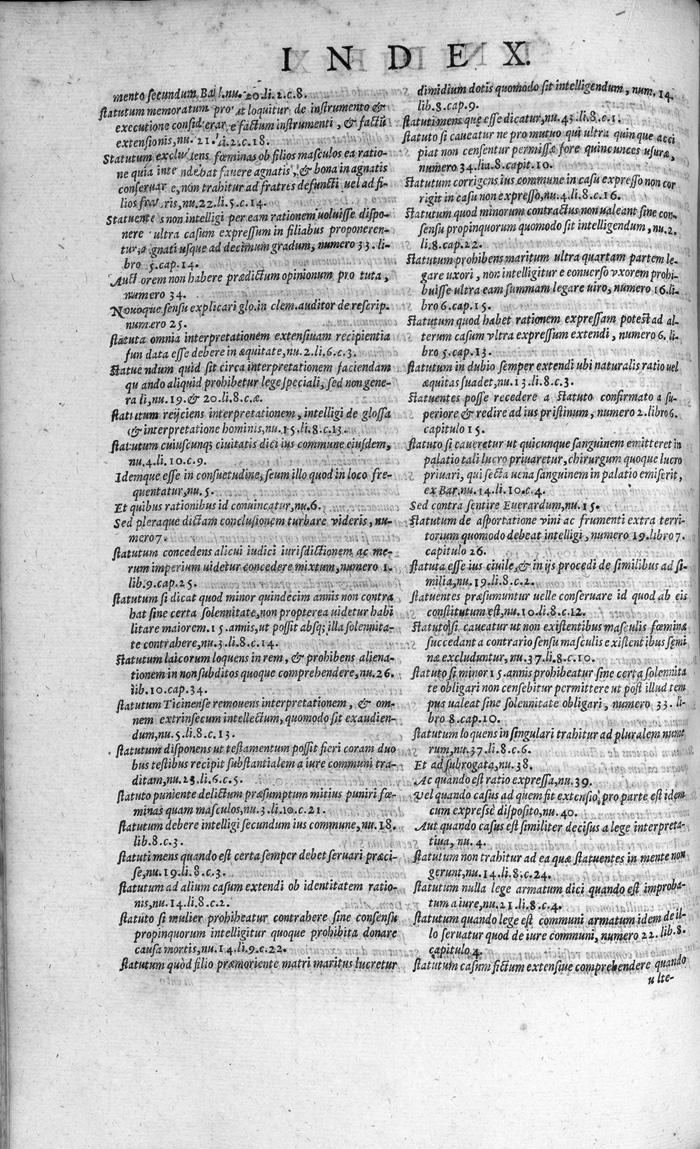 INDEX.
mento secundum Bal. nu. 20. li. 2. c. 8.
statutum memoratum loquitur de instrumento &
executione considerare factum instrumenti, & factũ
extensionis, nu. 21. li. 2. c. 18.
Statutum excludens fœminas ob filios masculos ea ratio-
ne quia intendebat fauere agnatis, & bona in agnatis
conseruare, non trahitur ad fratres defuncti uel ad fi-
lios fratris, nu. 22. li. 5. c. 14.
Statuentes non intelligi per eam rationem uoluisse dispo-
nere ultra casum expressum in filiabus proponeren-
tur, agnati usque ad decimum gradum, numero 33. li-
bro 5. cap. 14.
Auctorem non habere prædictum opinionum pro tuta,
numero 34.
Nouoque sensu explicari glo. in clem. auditor de rescrip.
numero 25.
statuta omnia interpretationem extensiuam recipientia
fun data esse debere in æquitate, nu. 2. li. 6. c. 3.
Statuendum quid sit circa interpretationem faciendam
quando aliquid prohibetur lege speciali, sed non gene-
rali, nu. 19. & 20. li. 8. c. æ.
statutum reijciens interpretationem, intelligi de glossa
& interpretatione hominis, nu. 15. li. 8. c. 13.
statutum cuiuscunq; ciuitatis dici ius commune eiusdem,
nu. 4. li. 10. c. 9.
Idemque esse in consuetudine, seum illo quod in loco fre-
quentatur, nu. 5.
Et quibus rationibus id conuincatur, nu. 6.
Sed pleraque dictam conclusionem turbare videris, nu-
mero 7.
statutum concedens alicui iudici iurisdictionem ac me-
rum imperium uidetur concedere mixtum, numero 1.
lib. 9. cap. 25.
statutum si dicat quod minor quindecim annis non contra
hat sine certa solennitate, non propterea uidetur habi
litare maiorem. 15. annis, ut possit absq; illa solennita-
te contrahere, nu. 3. li. 8. c. 14.
statutum laicorum loquens in rem, & prohibens aliena-
tionem in non subditos quoque comprehendere, nu. 26.
lib. 10. cap. 34.
statutum Ticinense remouens interpretationem, & om-
nem extrinsecum intellectum, quomodo sit exaudien-
dum, nu. 5. li. 8. c. 13.
statutum disponens ut testamentum possit fieri coram duo
bus testibus recipit substantialem a iure communi tra-
ditam, nu. 23. li. 6. c. 5.
statuto puniente delictum præsumptum mitius puniri fœ-
minas quam masculos, nu. 3. li. 10. c. 21.
statutum debere intelligi secundum ius commune, nu. 18.
lib. 8. c. 3.
statuti mens quando est certa semper debet seruari præci-
se, nu. 19. li. 8. c. 3.
statutum ad alium casum extendi ob identitatem ratio-
nis, nu. 14. li. 8. c. 2.
statuto si mulier prohibeatur contrahere sine consensu
propinquorum intelligitur quoque prohibita donare
causa mortis, nu. 14. li. 9. c. 22.
statutum quòd filio præmoriente matri maritus lucretur
dimidium dotis quomodo sit intelligendum, num. 14.
lib. 8. cap. 9.
statuti mens quæ esse dicatur, nu. 43. li. 8. c. 1.
statuto si caueatur ne pro mutuo qui ultra quinque acci
piat non censentur permissæ fore quincunces usuræ,
numero 34. lia. 8. capit. 10.
Statutum corrigens ius commune in casu expresso non cor
rigit in casu non expresso, nu. 4. li. 8. c. 16.
Statutum quod minorum contractus non ualeant sine con-
sensu propinquorum quomodo sit intelligendum, nu. 2.
li. 8. cap. 22.
statutum prohibens maritum ultra quartam partem le-
gare uxori, non intelligitur e conuerso vxorem prohi-
buisse ultra eam summam legare uiro, numero 16. li-
bro 6. cap. 15.
Statutum quod habet rationem expressam potest ad al-
terum casum vltra expressum extendi, numero 6. li-
bro 5. cap. 13.
statutum in dubio semper extendi ubi naturalis ratio uel
æquitas suadet, nu. 13. li. 8. c. 3.
Statuentes posse recedere a statuto confirmato a su-
periore & redire ad ius pristinum, numero 2. libro 6.
capitulo 15.
statuto si caueretur ut quicunque sanguinem emitteret in
palatio tali lucro priuaretur, chirurgum quoque lucro
priuari, qui secta uena sanguinem in palatio emiserit,
ex Bar. nu. 14. li. 10. c. 4.
Sed contra sentire Euerardum, nu. 15.
Statutum de asportatione vini ac frumenti extra terri-
torium quomodo debeat intelligi, numero 19. libro 7.
capitulo 26.
statuta esse ius ciuile, & in ijs procedi de similibus ad si-
milia, nu. 19. li. 8. c. 2.
statuentes præsumuntur uelle conseruare id quod ab eis
constitutum est, nu. 10. li. 8. c. 12.
Statuto si caueatur ut non existentibus masculis fœmina
succedant a contrario sensu masculis existentibus femi
næ excluduntur, nu. 37. li. 8. c. 10.
statuto si minor 15. annis prohibeatur sine certa solennita
te obligari non censebitur permittere ut post illud tem
pus ualeat sine solennitate obligari, numero 33. li-
bro 8. cap. 10.
statutum loquens in singulari trahitur ad pluralem nume
rum, nu. 37. li. 8. c. 6.
Et ad subrogata, nu. 38.
Ac quando est ratio expressa, nu. 39.
Vel quando casus ad quem fit extensio, pro parte est iden
cum expresse disposito, nu. 40.
Aut quando casus est similiter decisus a lege interpreta-
tiua, nu. 4.
statutum non trahitur ad ea quæ statuentes in mente non
gerunt, nu. 14. li. 8. c. 24.
statutum nulla lege armatum dici quando est improba-
tum a iure, nu. 21. li. 8. c. 4.
statutum quando lege est communi armatum idem de il-
lo seruatur quod de iure communi, numero 22. lib. 8.
capitulo 4.
statutum casum fictum extensiue comprehendere quando
ulte-